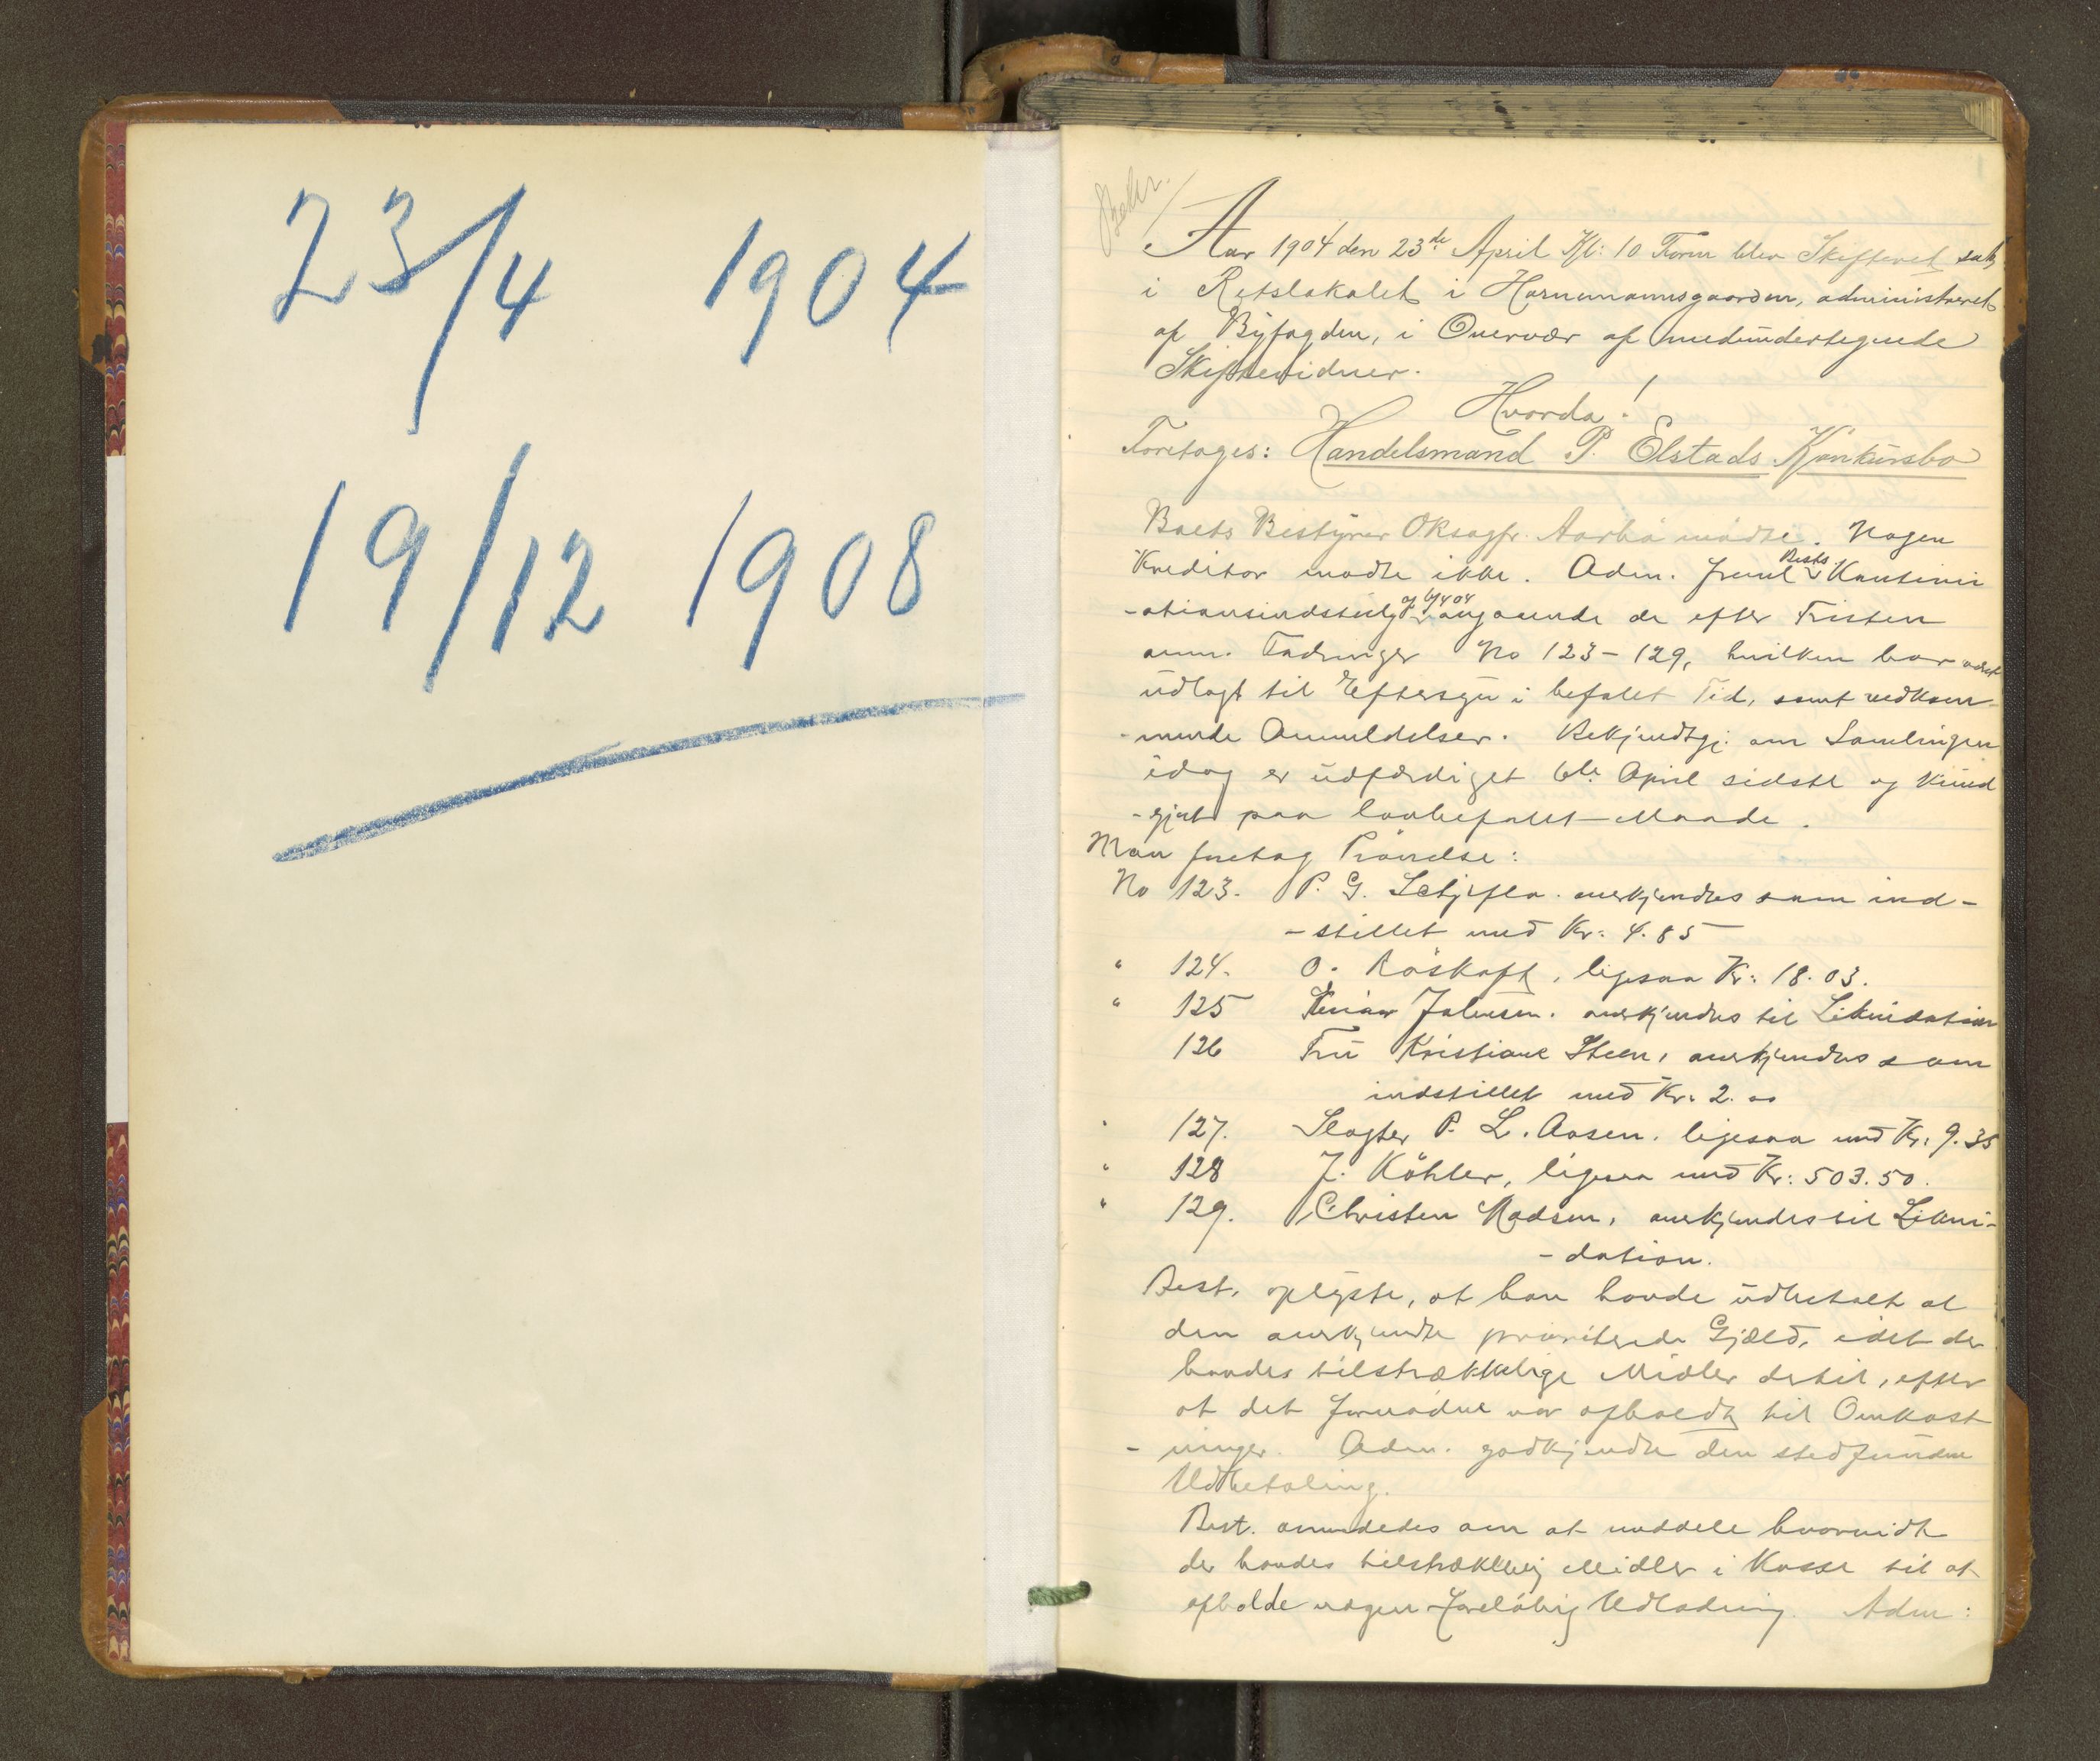 23/4 1904
19/12 1908
Aar 1904 den 23de April Kl: 10 Form blev Skifteret sat
i Retslokalet i Hornemannsgaarden, administreret
af Byfogden, i Overvær af medundertegnede
Skiftevidner.
Hvorda!
Foretages: Handelsmand P. Elstads Konkursbo
Boets Bestyrer OKsagfr. mødte. Nogen
Kreditor mødte ikke. Adm. freml Bests Kontinu
-ationsindstillg af angaaende de efter Fristen
anm. Fodringer No 123-129, hvilken har været
udlagt til Eftersyn i befalet Tid, samt vedkom-
-mende Anmeldelser. Bekjendtgj. om Samlingen
idag er udfærdiget 6te April sidste og kund
-gjort paa lovbefalet Maade.
Man foretog Prøvelse:
No 123. P. G. anerkjendtes som ind-
-stillet med Kr: 4.85
" 124. O. Röskaft, ligesaa Kr: 18.03.
" 125 anerkjendtes til Likvidation
126 Fru Kristiane Steen, anerkjendtes som
indstillet med Kr. 2.00
" 127. Slagter P. L. Aasen. ligesaa med Kr. 9.35
" 128 J. Köhler, ligesaa med Kr: 503.50.
" 129. Christen Madsen, anerkjendtes til Likvi-
-dation.
Best. oplyste, at han havde udbetalt al
den anerkjendte prioriterede Gjæld, idet der
havdes tilstrækkelige Midler dertil, efter
at det fornødne var afholdt til Omkost
-ninger. Adm. godkjendte den stedfundne
Udbetaling.
Best. anmodedes om at meddele hvorvidt
der havdes tilstrækkelig Midler i Kasse til at
afholde nogen foreløbig Udlodning. Adm: